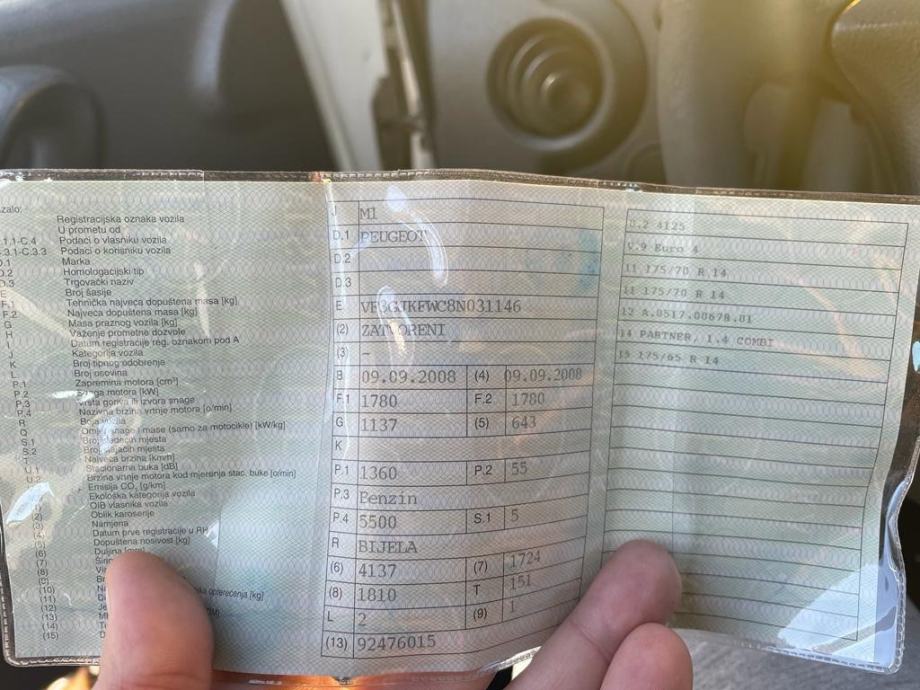 Registracijska oznaka vozila
U prometu od
Podaci o vlasniku vozila
Podaci o korisniku vozila
Marka
Homologacijski tip
Trgovački naziv
Broj šasije
F.1 Tehnička najveća dopuštena masa [kg]
F.2 Najveća dopuštena masa [kg]
G Masa praznog vozila [kg]
H Važenje prometne dozvole
I Datum registracije reg. oznakom pod A
J Kategorija vozila
K Broj tipnog odobrenje
L Broj osovina
P.1 Zapremina motora [cm³]
P.2 Snaga motora [kW]
P.3 Vrsta goriva ili izvora snage
P.4 Nazivna brzina vrtnje motora [o/min]
R Boja vozila
Q Omjer snage i mase (samo za motocikle) [kW/kg]
S.1 Broj sjedećih mjesta
S.2 Broj stajaćih mjesta
T Najveća brzina [km/h]
U.1 Stacionarna buka [dB]
U.2 Brzina vrtnje motora kod mjerenja stac. buke [o/min]
Emisija CO₂ [g/km]
Ekološka kategorija vozila
OIB vlasnika vozila
Oblik karoserije
Namjena
Datum prve registracije u RH
Dopuštena nosivost [kg]
(6) Duljina [mm]
(7)
(8)
(9)
(10)
(11)
(12)
(13)
(14)
(15)
J M1
D.1 PEUGEOT
D.2
D.3
E VF3GJKFWC8N031146
(2) ZATVORENI
(3) –
B 09.09.2008 (4) 09.09.2008
F.1 1780 F.2 1780
G 1137 (5) 643
K
P.1 1360 P.2 55
P.3 Benzin
P.4 5500 S.1 5
R BIJELA
(6) 4137 (7) 1724
(8) 1810 T 151
L 2 (9) 1
(13) 92476015
D.2 4125
V.9 Euro 4
11 175/70 R 14
11 175/70 R 14
12 A.0517.00678.01
14 PARTNER, 1.4 COMBI
15 175/65 R 14